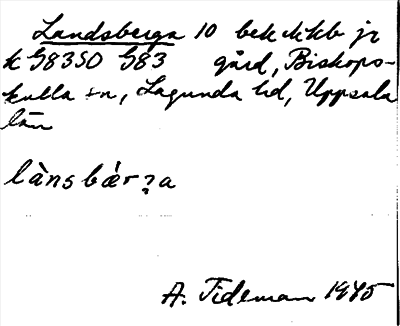 Landsberga 10 bek ekkb jr
k G8350 G83 gård, Biskops-
kulla sn, Lagunda hd, Uppsala
län
lànsbær̀ʒa
A. Tideman 1945